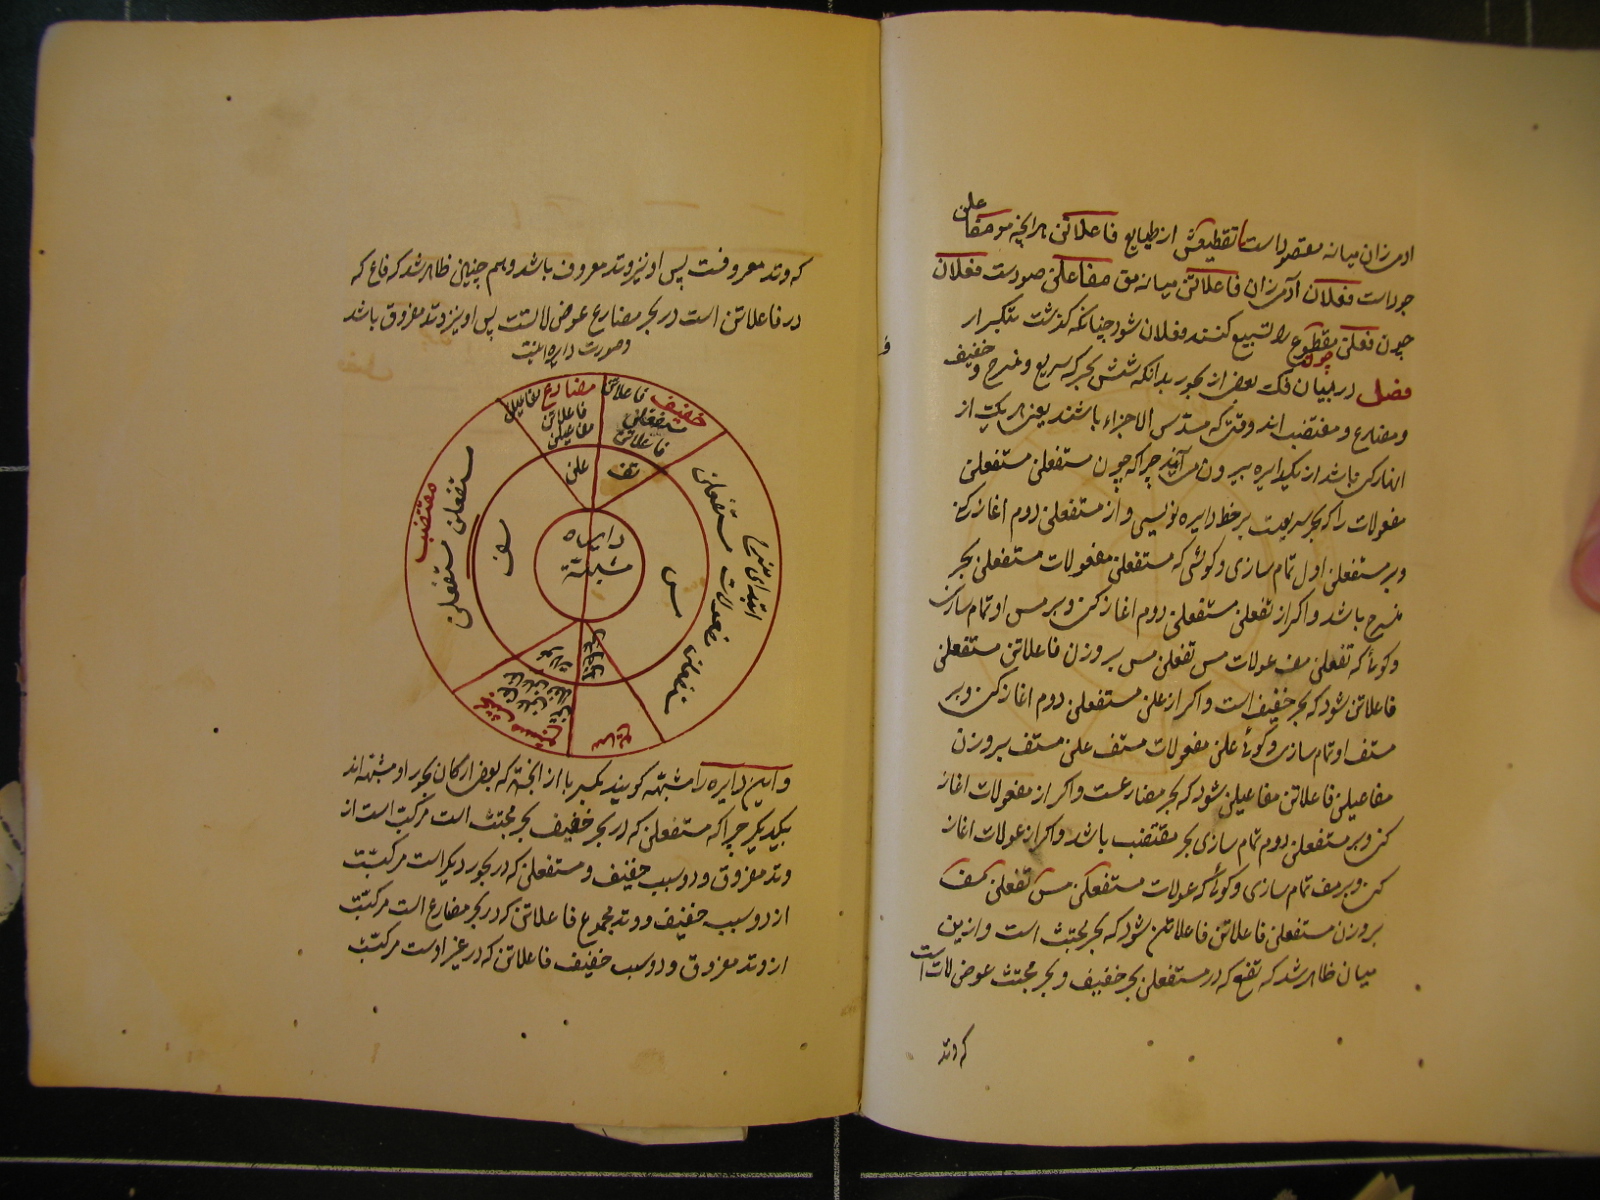 علن
ادمرزان میانه مقصور است تقطیعش از طبایع فاعلاتن هرانچه مو مفا
جوداست فعلان آدمرزان فاعلاتن میانه مق مفاعلن صودست فعلان
چون فعلن مقطوع را تسبیع کنند فعلان شود چنانکه گذشت بتکرار
فصل در بیان فک بعض از بحور بدانکه شش بحر که سریع و منسرح و خفیف
و مضارع و مقتضب اند وقتی که مسدس الاجزاء باشند یعنی هر یک از
ارکان باشد از یکدایره بیرون می آیند چرا که چون مستفعلن مستفعلن
مفعولات را که بحر سریعست بر خط دایره نویسی و از مستفعلن دوم اغاز کنی
و بر مستفعلن اول تمام سازی و کوئی که مستفعلن مفعولات مستفعلن بحر
منسرح باشد و اکر از تفعلن مستفعلن دوم اغاز کنی و بر مس او تمام سازی
و کوئی که تفعلن مف عولات مس تفعلن مس بر وزن فاعلاتن مستفعلن
فاعلاتن شود که بحر خفیف است و اکر از علن مستفعلن دوم اغاز کنی و بر
مستف او تمام سازی و کوئی علن مفعولات مستف علن مستف بر وزن
مفاعیلن فاعلاتن مفاعیلن شود که بحر مضارعست و اکر از مفعولات اغاز
کنی و بر مستفعلن دوم تمام سازی بحر مقتضب باشد و اکر از عولات اغاز
کنی و بر مف تمام سازی و کوئی که عولات مستفعلن مس تفعلن مف
بر وزن مستفعلن فاعلاتن فاعلاتن شود که بحر مجتث است و ازین
میان ظاهر شد که تفع که در مستفعلن بحر خفیف و بحر مجتث عوض لات است
که وتد
که وتد معروفست پس او نیز وتد معروف باشد و هم چنین ظاهر شد که فاع که
در فاعلاتن است در بحر مضارع عوض لاتست پس او نیز وتد مفروق باشد
و صورت دایره اینست
خفیف فاعلاتن
مستفعلن
فاعلاتن
مضارع مفاعیلن
فاعلاتن
مفاعیلن
تفـ
علن
مقتضب
مستفعلن مستفعلن
مف
دایره
مشتبهة
مس
مستفعلن مفعولات مستفعلن
ابتدای منسرح
عولات
سریع
و این دایره را مشتبهه کویند بکسر با از انجهة که بعض ارکان بحور او مشتبه اند
بیکدیکر چرا که مستفعلن که در بحر خفیف بحر مجتث است مرکب است از
وتد مفروق و دو سبب خفیف و مستفعلن که در بحور دیکر است مرکبست
از دو سبب خفیف و وتد مجموع فاعلاتن که در بحر مضارع است مرکبست
از وتد مفروق و دو سبب خفیف فاعلاتن که در غیر اوست مرکبست